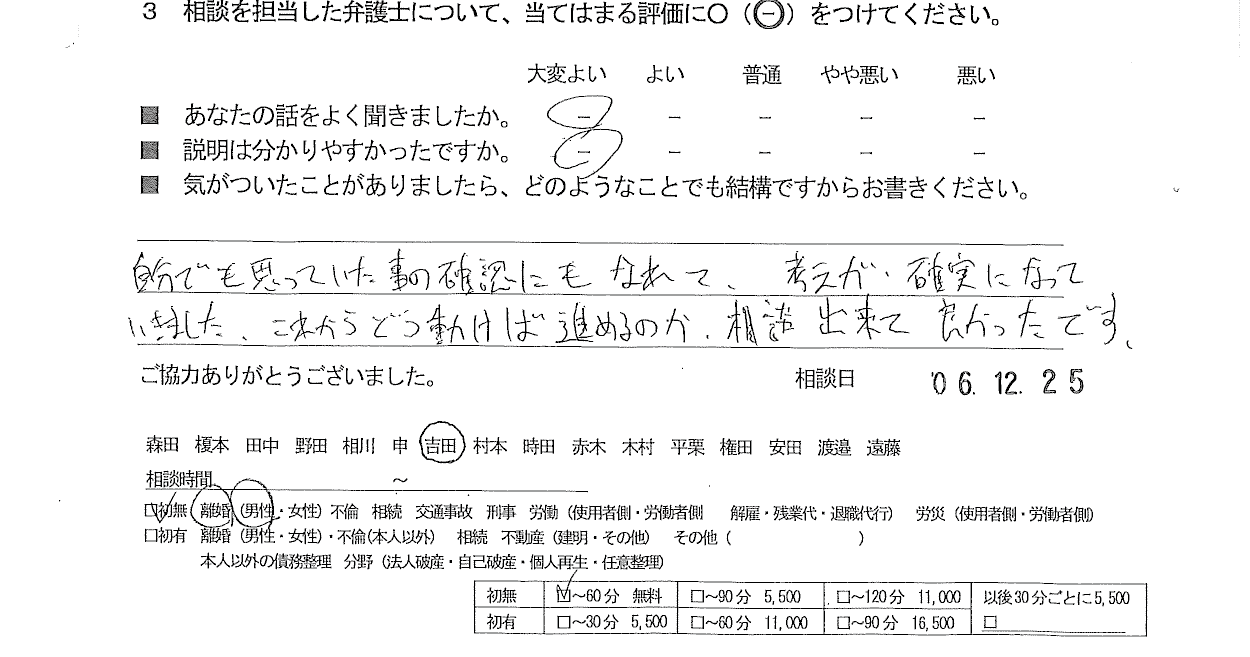 3 相談を担当した弁護士について、当てはまる評価に○（㊀）をつけてください。
大変よい よい 普通 やや悪い 悪い
■ あなたの話をよく聞きましたか。 － － － － －
■ 説明は分かりやすかったですか。 － － － － －
■ 気がついたことがありましたら、どのようなことでも結構ですからお書きください。
自分でも思っていた事の確認にもなれて、考えが、確実になって
いきました、これからどう動けば進めるのか、相談出来て良かったです、
ご協力ありがとうございました。 相談日 '06.12.25
森田 榎本 田中 野田 相川 申 吉田 村本 時田 赤木 木村 平栗 権田 安田 渡邉 遠藤
相談時間 ～
□初無 離婚（男性・女性）不倫 相続 交通事故 刑事 労働（使用者側・労働者側 解雇・残業代・退職代行） 労災（使用者側・労働者側）
□初有 離婚（男性・女性）・不倫（本人以外） 相続 不動産（建明・その他） その他（ ）
本人以外の債務整理 分野（法人破産・自己破産・個人再生・任意整理）
初無 ☑～60分 無料 □～90分 5,500 □～120分 11,000 以後30分ごとに5,500
初有 □～30分 5,500 □～60分 11,000 □～90分 16,500 □